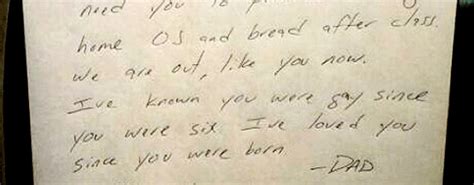 need you to
home OJ and bread after class.
we are out, like you now.
I've known you were gay since
you were six. I've loved you
since you were born.
-DAD